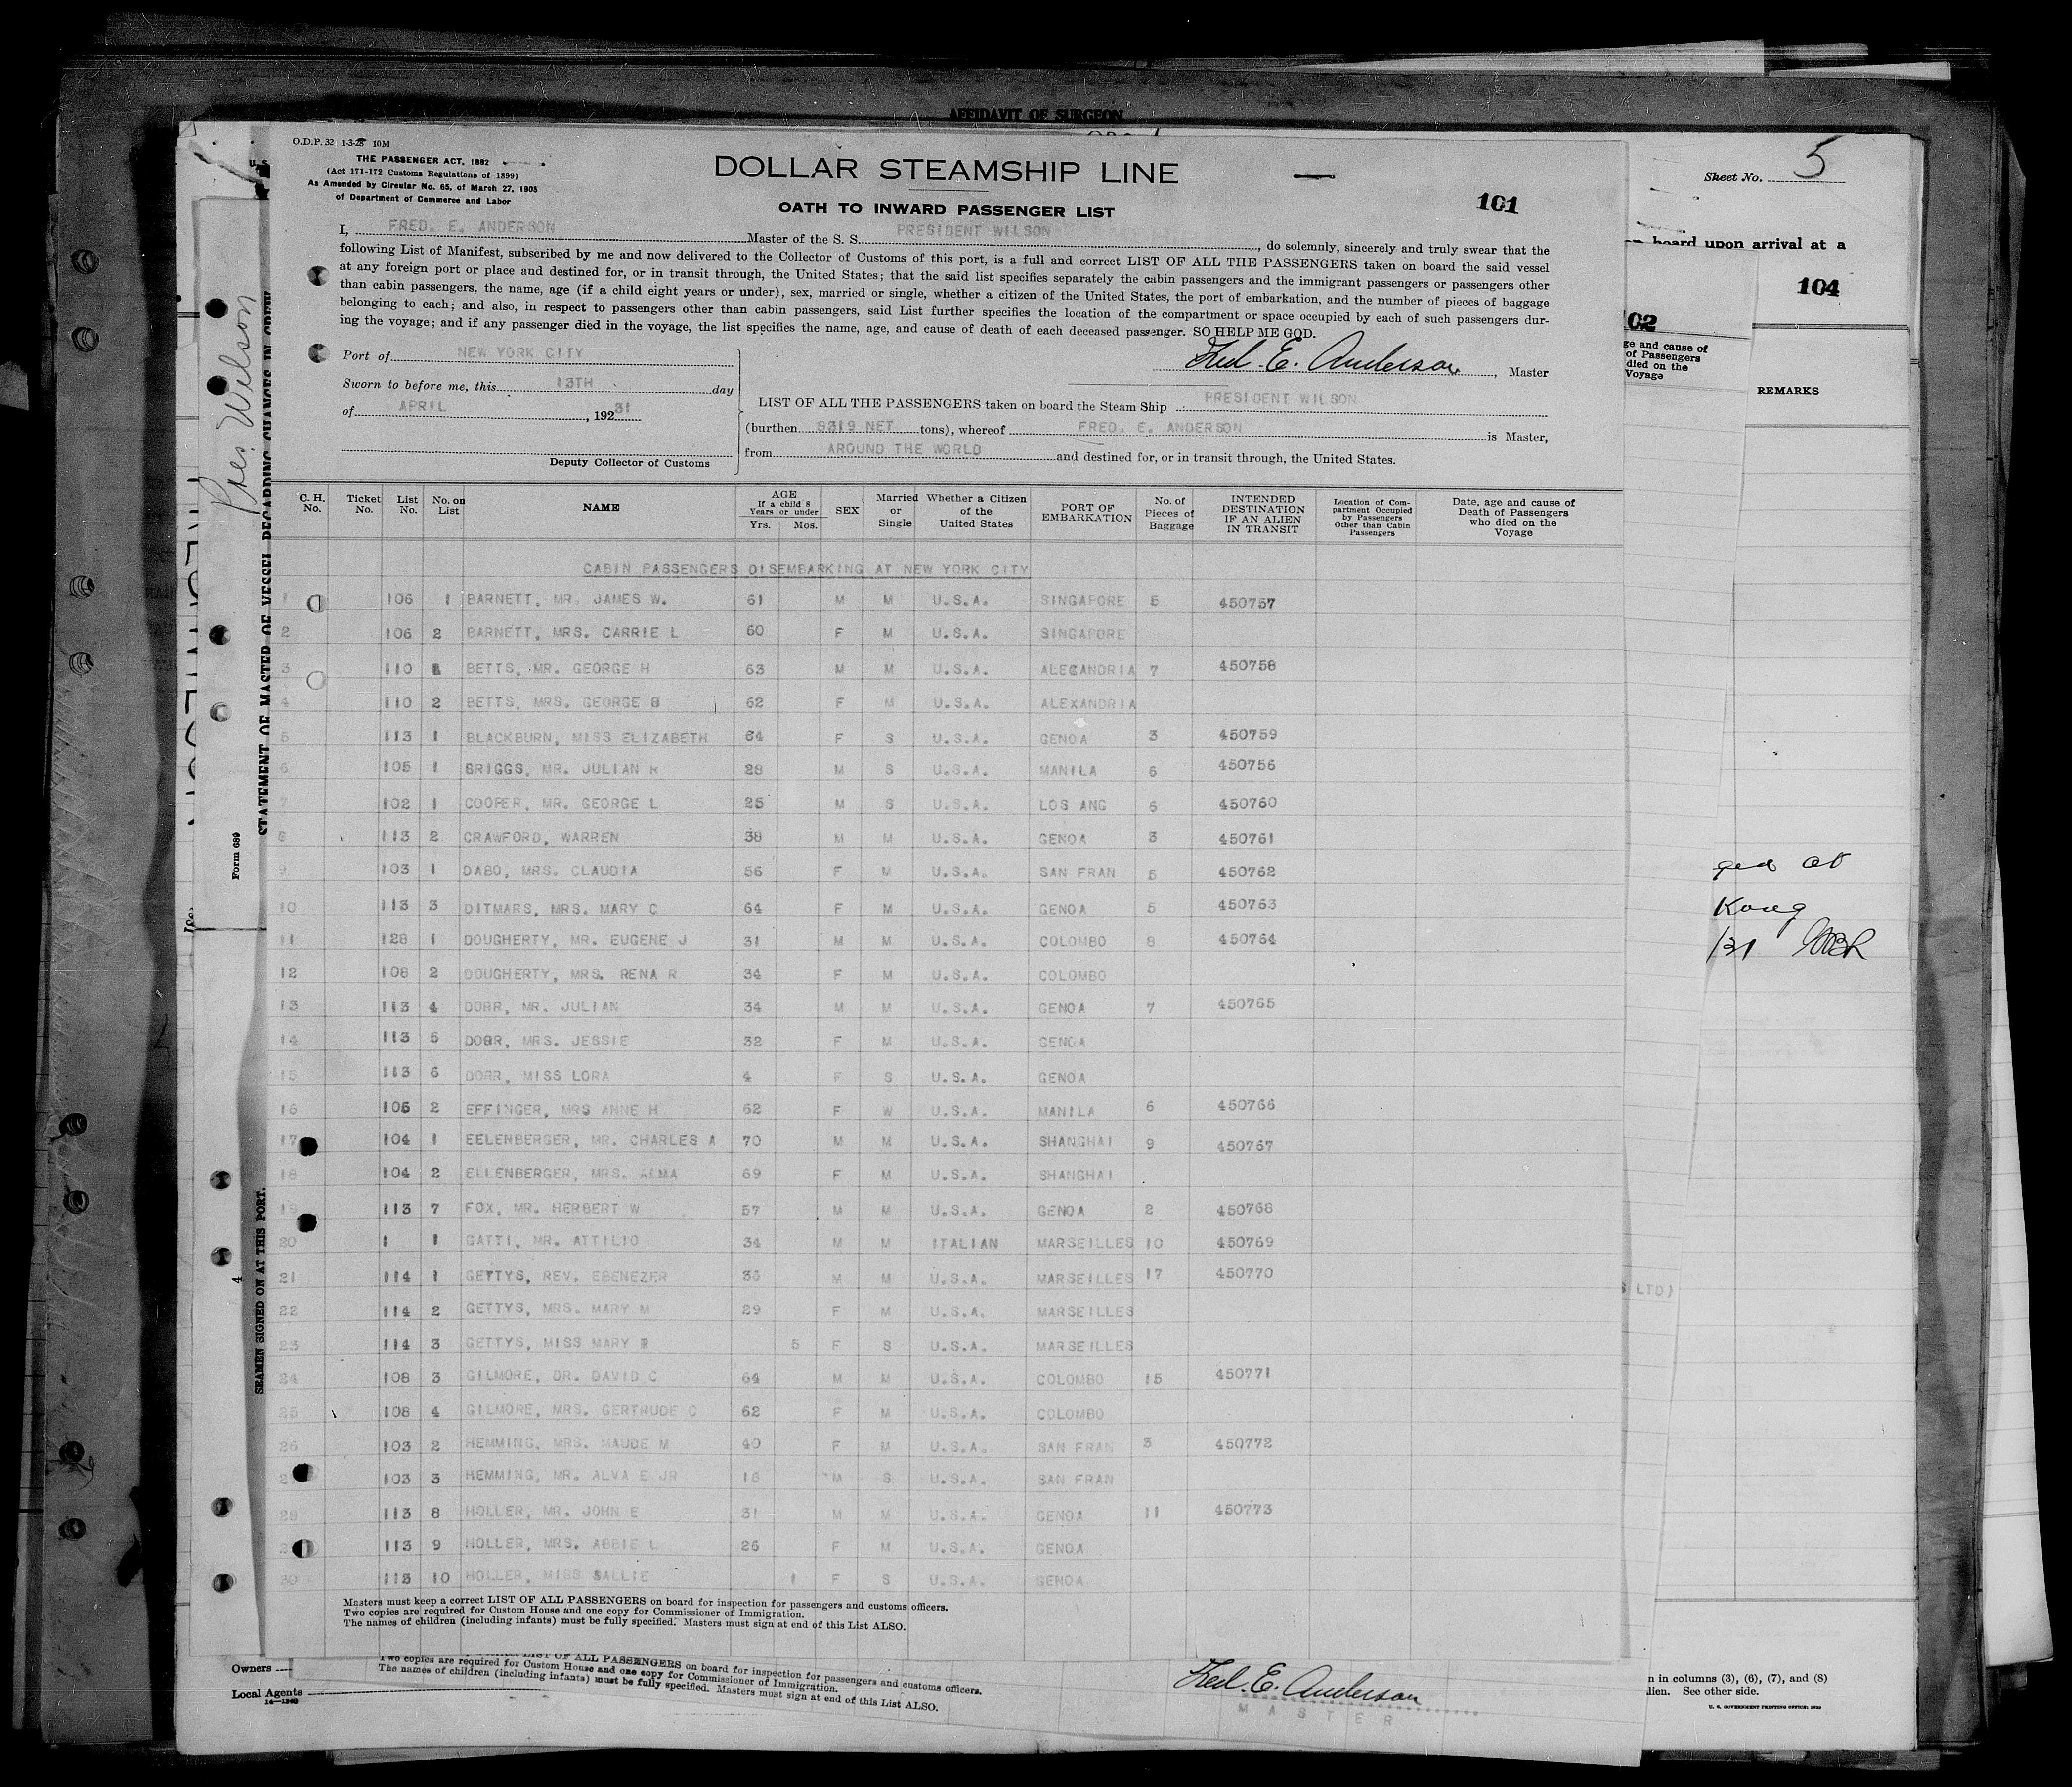 AFFIDAVIT OF SURGEON
O.D.P. 32 1-3-28 10M
THE PASSENGER ACT, 1882
(Act 171-172 Customs Regulations of 1899)
As Amended by Circular No. 65, of March 27, 1905
of Department of Commerce and Labor
DOLLAR STEAMSHIP LINE
OATH TO INWARD PASSENGER LIST
101
I, FRED. E. ANDERSON Master of the S. S. PRESIDENT WILSON, do solemnly, sincerely and truly swear that the
following List of Manifest, subscribed by me and now delivered to the Collector of Customs of this port, is a full and correct LIST OF ALL THE PASSENGERS taken on board the said vessel
at any foreign port or place and destined for, or in transit through, the United States; that the said list specifies separately the cabin passengers and the immigrant passengers or passengers other
than cabin passengers, the name, age (if a child eight years or under), sex, married or single, whether a citizen of the United States, the port of embarkation, and the number of pieces of baggage
belonging to each; and also, in respect to passengers other than cabin passengers, said List further specifies the location of the compartment or space occupied by each of such passengers dur-
ing the voyage; and if any passenger died in the voyage, the list specifies the name, age, and cause of death of each deceased passenger. SO HELP ME GOD.
Port of NEW YORK CITY
Sworn to before me, this 13TH day
of APRIL, 192 31
Deputy Collector of Customs
Fred. E. Anderson, Master
LIST OF ALL THE PASSENGERS taken on board the Steam Ship PRESIDENT WILSON
(burthen 8319 NET tons), whereof FRED. E. ANDERSON is Master,
from AROUND THE WORLD and destined for, or in transit through, the United States.
C. H. No. Ticket No. List No. No. on List NAME AGE If a child 8 Years or under Yrs. Mos. SEX Married or Single Whether a Citizen of the United States PORT OF EMBARKATION No. of Pieces of Baggage INTENDED DESTINATION IF AN ALIEN IN TRANSIT Location of Compartment Occupied by Passengers Other than Cabin Passengers Date, age and cause of Death of Passengers who died on the Voyage
CABIN PASSENGERS DISEMBARKING AT NEW YORK CITY
1 106 1 BARNETT, MR. JAMES W. 61 M M U.S.A. SINGAPORE 5 450757
2 106 2 BARNETT, MRS. CARRIE L 60 F M U.S.A. SINGAPORE
3 110 1 BETTS, MR. GEORGE H 63 M M U.S.A. ALECANDRIA 7 450758
4 110 2 BETTS, MRS. GEORGE 62 F M U.S.A. ALEXANDRIA
5 113 1 BLACKBURN, MISS ELIZABETH 64 F S U.S.A. GENOA 3 450759
6 105 1 BRIGGS, MR. JULIAN H 28 M S U.S.A. MANILA 6 450756
7 102 1 COOPER, MR. GEORGE L 25 M S U.S.A. LOS ANG 6 450760
8 113 2 CRAWFORD, WARREN 38 M M U.S.A. GENOA 3 450761
9 103 1 DABO, MRS. CLAUDIA 56 F M U.S.A. SAN FRAN 5 450762
10 113 3 DITMARS, MRS. MARY C 64 F M U.S.A. GENOA 5 450763
11 128 1 DOUGHERTY, MR. EUGENE J 31 M M U.S.A. COLOMBO 8 450764
12 108 2 DOUGHERTY, MRS. RENA R 34 F M U.S.A. COLOMBO
13 113 4 DORR, MR. JULIAN 34 M M U.S.A. GENOA 7 450765
14 113 5 DORR, MRS. JESSIE 32 F M U.S.A. GENOA
15 113 6 DORR, MISS LORA 4 F S U.S.A. GENOA
16 105 2 EFFINGER, MRS ANNE H 62 F W U.S.A. MANILA 6 450766
17 104 1 EELENBERGER, MR. CHARLES A 70 M M U.S.A. SHANGHAI 9 450767
18 104 2 ELLENBERGER, MRS. ALMA 69 F M U.S.A. SHANGHAI
19 113 7 FOX, MR. HERBERT W 57 M M U.S.A. GENOA 2 450768
20 1 1 GATTI, MR. ATTILIO 34 M M ITALIAN MARSEILLES 10 450769
21 114 1 GETTYS, REV. EBENEZER M M U.S.A. MARSEILLES 17 450770
22 114 2 GETTYS, MRS. MARY M 29 F M U.S.A. MARSEILLES
23 114 3 GETTYS, MISS MARY R 5 F S U.S.A. MARSEILLES
24 108 3 GILMORE, DR. DAVID C 64 M M U.S.A. COLOMBO 15 450771
25 108 4 GILMORE, MRS. GERTRUDE C 62 F M U.S.A. COLOMBO
26 103 2 HEMMING, MRS. MAUDE M 40 F M U.S.A. SAN FRAN 3 450772
2 103 3 HEMMING, MR. ALVA E JR 16 M S U.S.A. SAN FRAN
28 113 8 HOLLER, MR. JOHN E 31 M M U.S.A. GENOA 11 450773
2 113 9 HOLLER, MRS. ABBIE L 26 F M U.S.A. GENOA
30 113 10 HOLLER, MISS SALLIE 1 F S U.S.A. GENOA
Masters must keep a correct LIST OF ALL PASSENGERS on board for inspection for passengers and customs officers.
Two copies are required for Custom House and one copy for Commissioner of Immigration.
The names of children (including infants) must be fully specified. Masters must sign at end of this List ALSO.
LIST OF ALL PASSENGERS on board for inspection for passengers and customs officers.
Two copies are required for Custom House and one copy for Commissioner of Immigration.
The names of children (including infants) must be fully specified. Masters must sign at end of this List ALSO.
Fred. E. Anderson
MASTER
Owners
Local Agents
14-1240
Pres Wilson
STATEMENT OF MASTER OF VESSEL REGARDING CHANGES IN CREW
Form 689
SEAMEN SIGNED ON AT THIS PORT.
4
Sheet No. 5
board upon arrival at a
104
02
ge and cause of
of Passengers
died on the
Voyage
REMARKS
ged at
Kong
/31
LTD)
n in columns (3), (6), (7), and (8)
lien. See other side.
U. S. GOVERNMENT PRINTING OFFICE: 1930